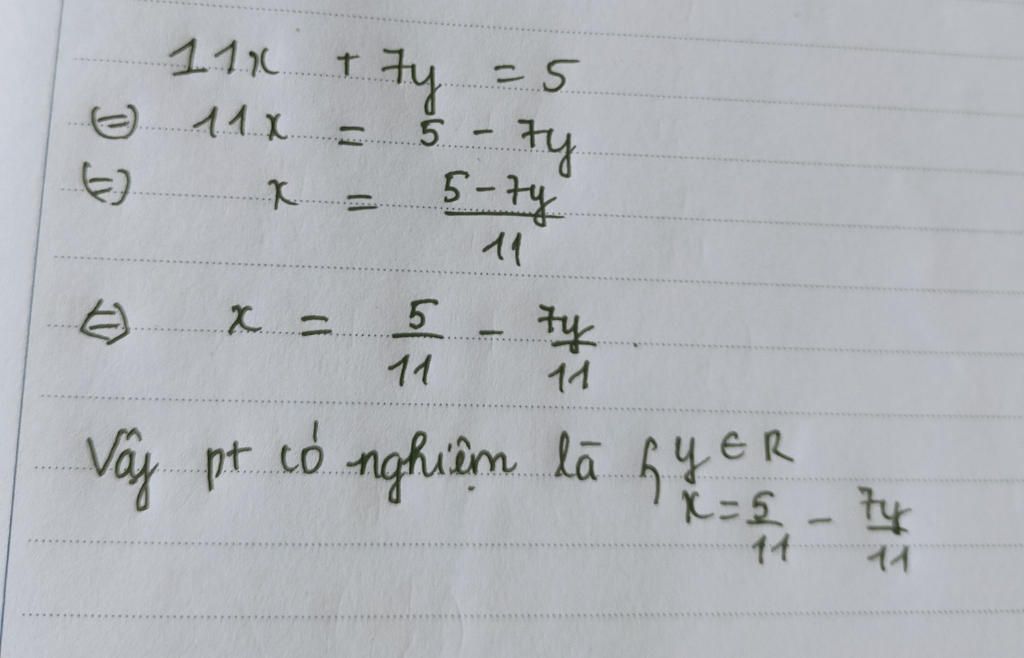 11x + 7y = 5
⇔ 11x = 5 - 7y
⇔ x = (5 - 7y)/11
⇔ x = 5/11 - 7y/11.
Vậy pt có nghiệm là { y ∈ R
x = 5/11 - 7y/11